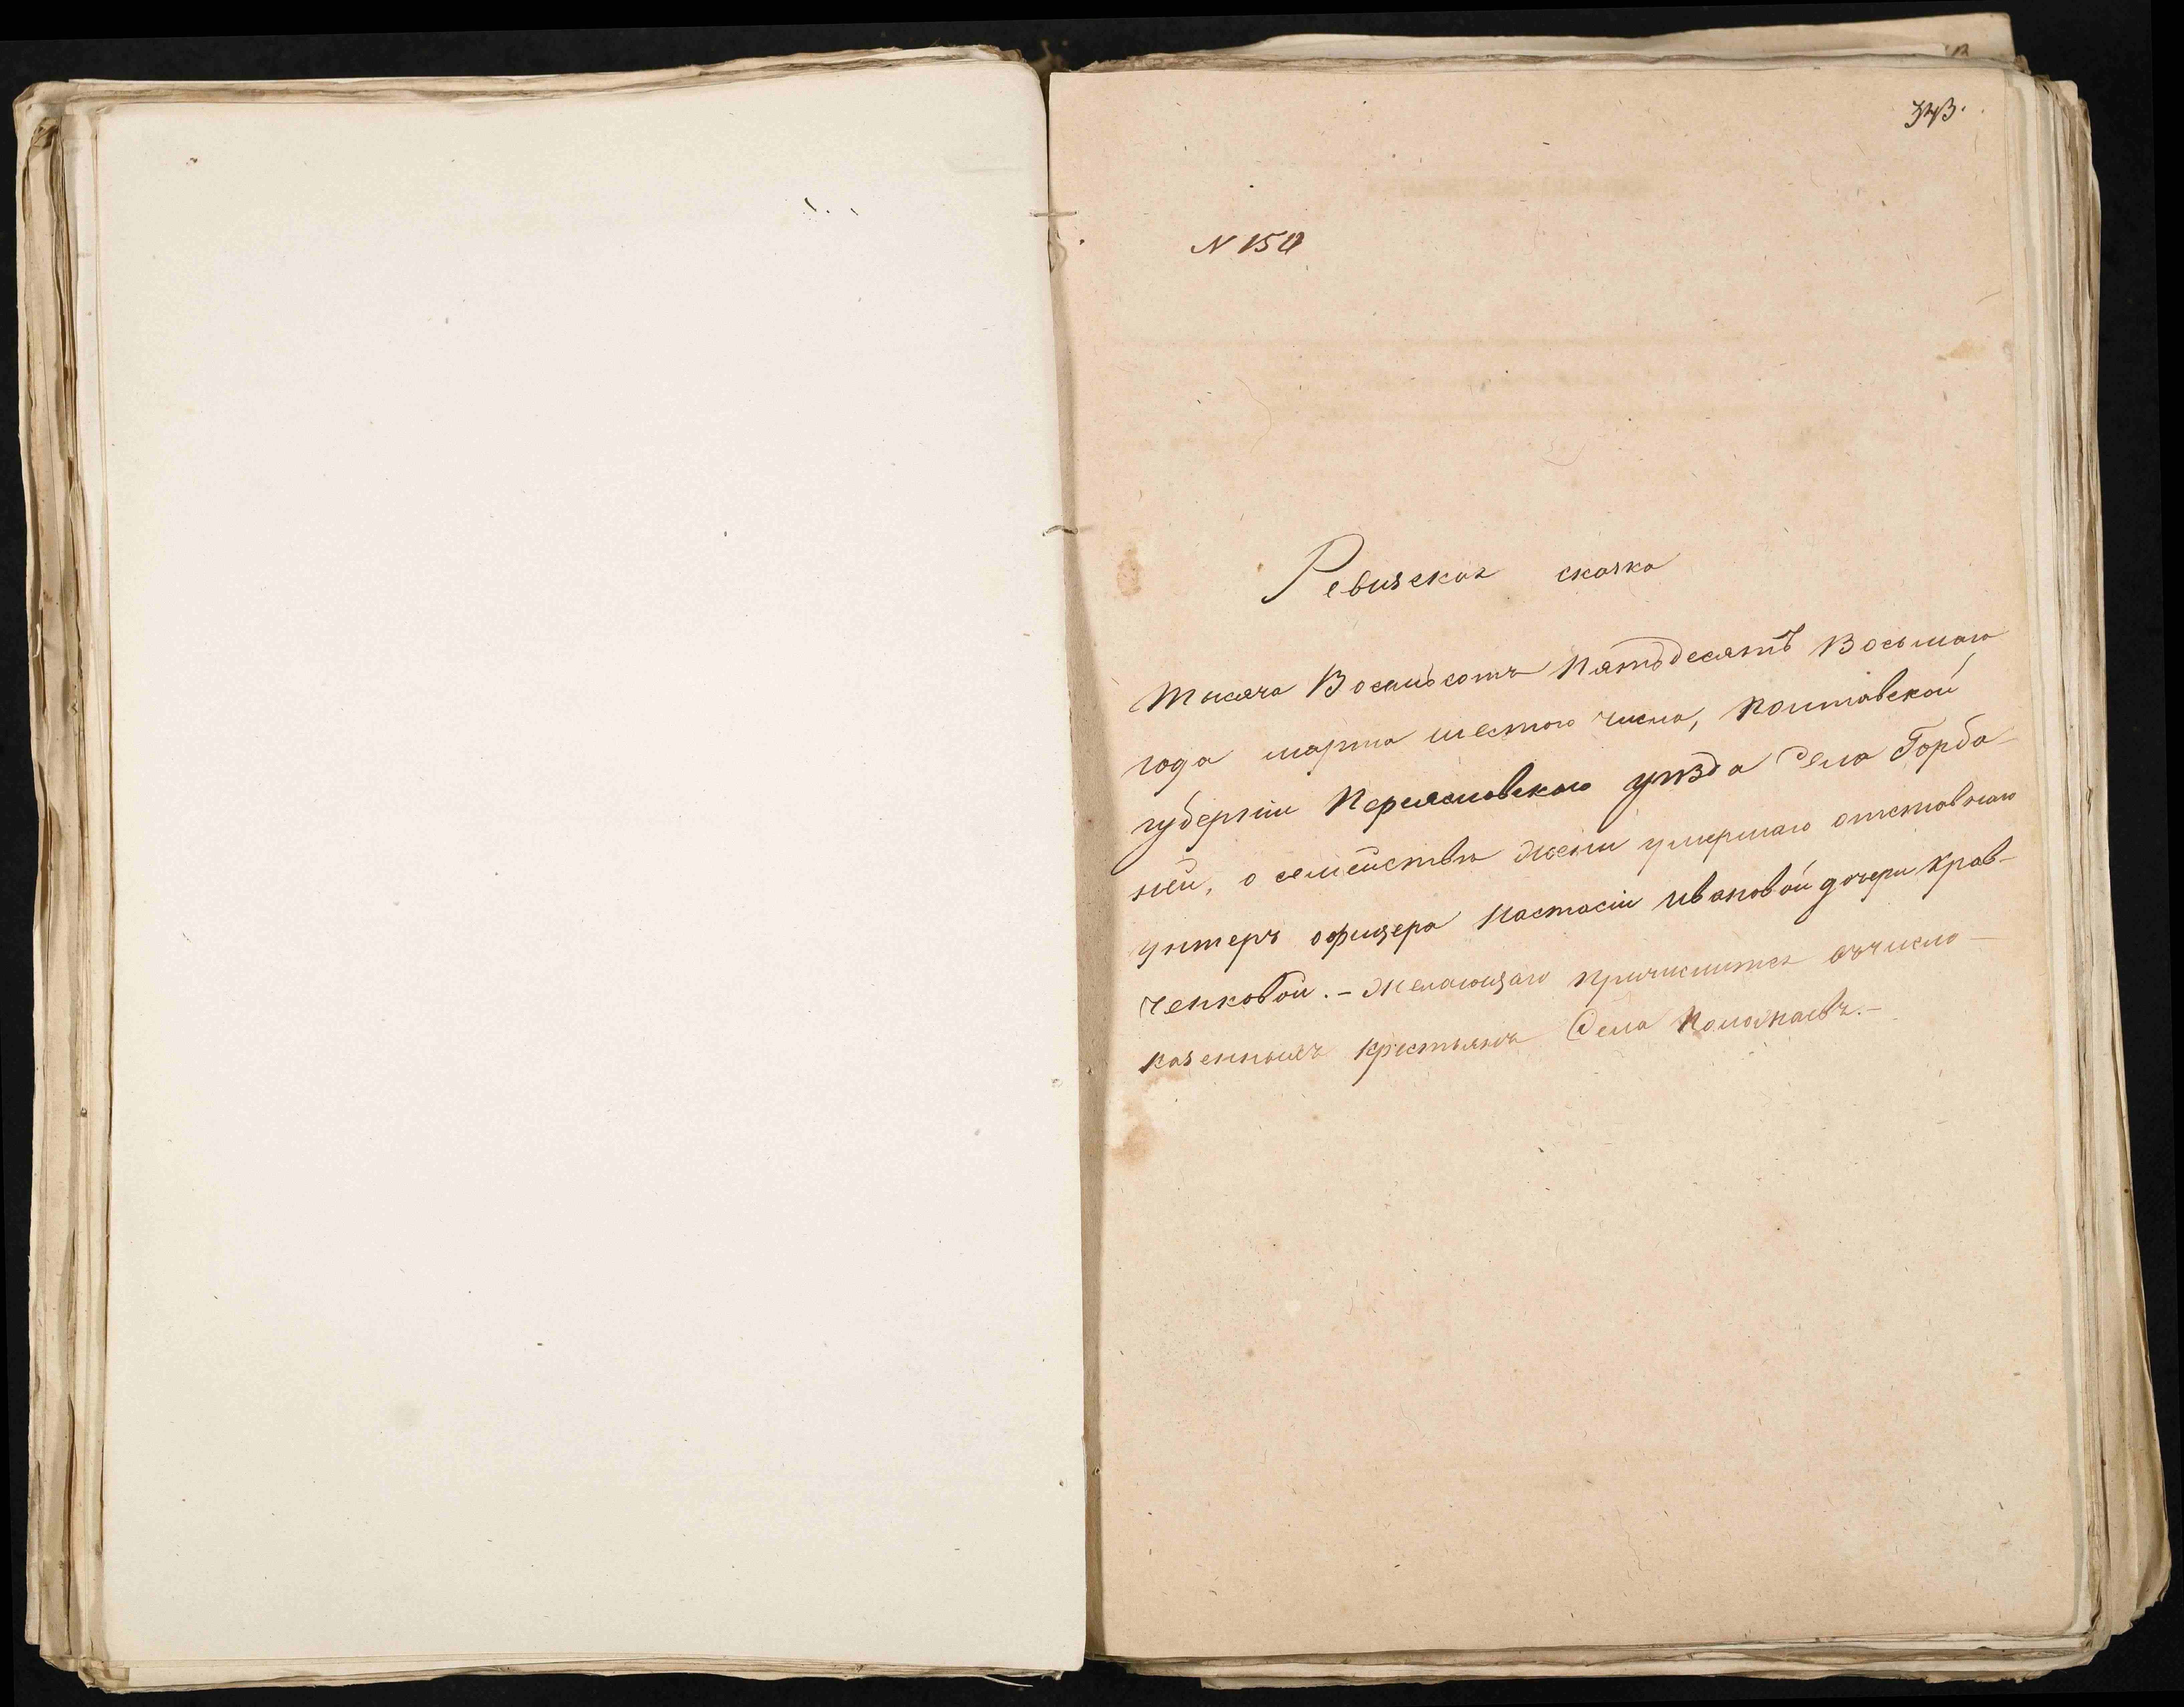 343.
N 150
Ревизская сказка
Тысяча Восемьсотъ Пятьдесятъ Восьмаго
года марта шестого числа, Полтавской
губерніи Переяславского уѣзда Села Горба-
ней, о семействѣ жены умершаго отставнаго
унтеръ офицера Настасіи Ивановой дочери Крав-
ченковой. - Желающаго причислится въ число -
казенныхъ крестьянъ Села Положаевъ. -